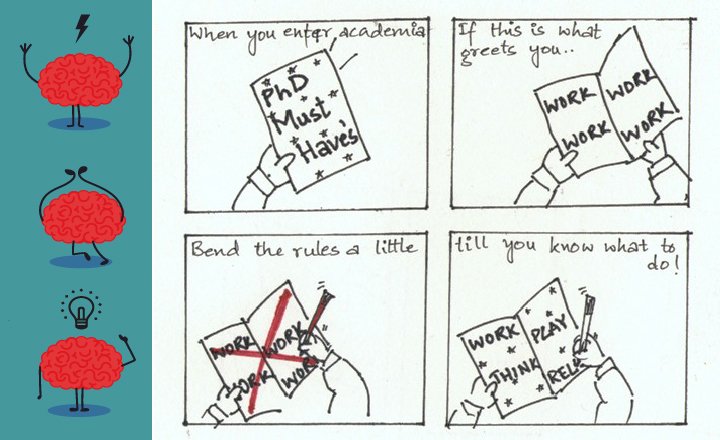 When you enter academia
PhD
Must
Have's
If this is what
greets you..
WORK
WORK
WORK
WORK
Bend the rules a little
WORK
WORK
WORK
WORK
till you know what to
do!
WORK
PLAY
THINK
RELA